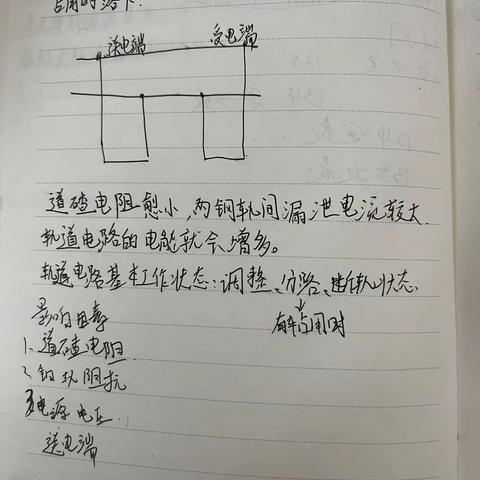 占用时落下.
送电端 受电端
道碴电阻愈小,两钢轨间漏泄电流较大.
轨道电路的电能就会增多。
轨道电路基本工作状态:调整、分路、断轨状态.
有车占用时
影响因素
1、道碴电阻
2、钢轨阻抗
3、电源电压.
送电端